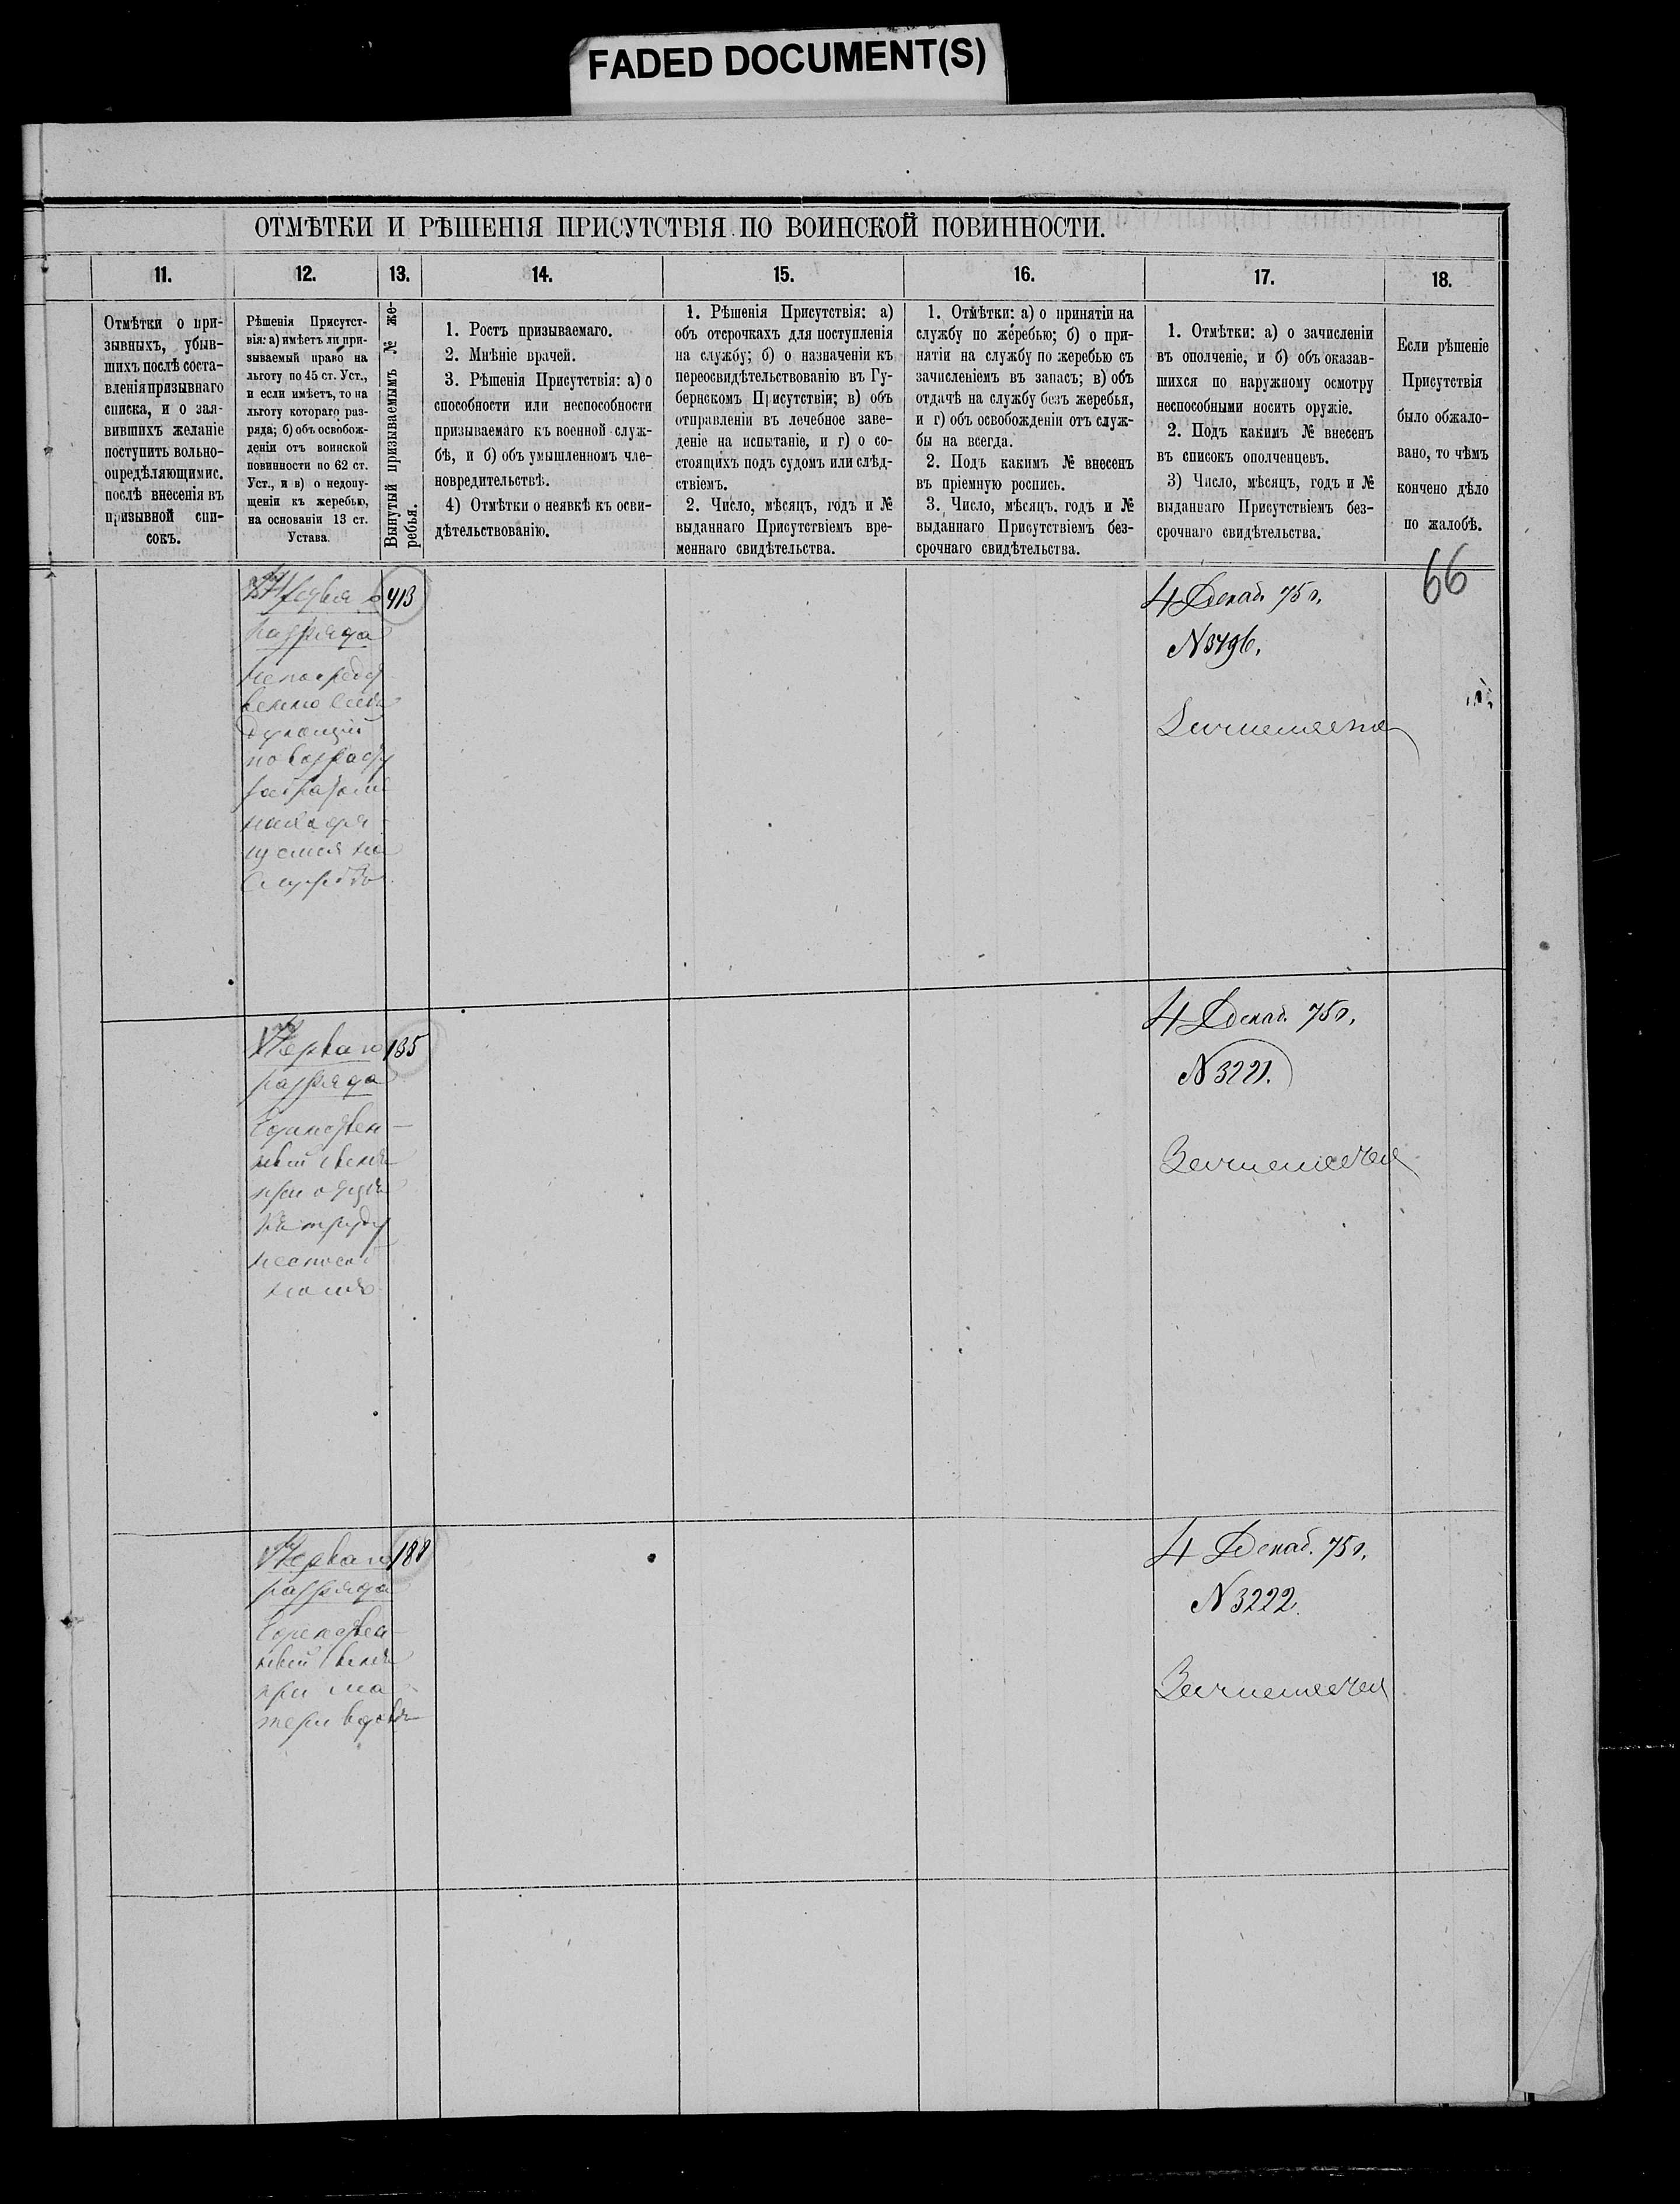 FADED DOCUMENT(S)
ОТМѢТКИ И РѢШЕНІЯ ПРИСУТСТВІЯ ПО ВОИНСКОЙ ПОВИННОСТИ.
11.
12.
13.
14.
15.
16.
17.
18.
Отмѣтки о при-
зывныхъ, убыв-
шихъ послѣ соста-
вленія призывнаго
списка, и о зая-
вившихъ желаніе
поступить вольно-
опредѣляющимис.
послѣ внесенія въ
призывной спи-
сокъ.
Рѣшенія Присутст-
вія: а) имѣетъ ли при-
зываемый право на
льготу по 45 ст. Уст.,
и если имѣетъ, то на
льготу котораго раз-
ряда; б) объ освобож-
деніи отъ воинской
повинности по 62 ст.
Уст., и в) о недопу-
щеніи къ жеребью,
на основаніи 13 ст.
Устава.
Вынутый призываемымъ № же-
ребья.
1. Ростъ призываемаго.
2. Мнѣніе врачей.
3. Рѣшенія Присутствія: а) о
способности или неспособности
призываемаго къ военной служ-
бѣ, и б) объ умышленномъ чле-
новредительствѣ.
4) Отмѣтки о неявкѣ къ осви-
дѣтельствованію.
1. Рѣшенія Присутствія: а)
объ отсрочкахъ для поступленія
на службу; б) о назначеніи къ
переосвидѣтельствованію въ Гу-
бернскомъ Присутствіи; в) объ
отправленіи въ лечебное заве-
деніе на испытаніе, и г) о со-
стоящихъ подъ судомъ или слѣд-
ствіемъ.
2. Число, мѣсяцъ, годъ и №
выданнаго Присутствіемъ вре-
меннаго свидѣтельства.
1. Отмѣтки: а) о принятіи на
службу по жеребью; б) о при-
нятіи на службу по жеребью съ
зачисленіемъ въ запасъ; в) объ
отдачѣ на службу безъ жеребья,
и г) объ освобожденіи отъ служ-
бы на всегда.
2. Подъ какимъ № внесенъ
въ пріемную роспись.
3. Число, мѣсяцъ, годъ и №
выданнаго Присутствіемъ без-
срочнаго свидѣтельства.
1. Отмѣтки: а) о зачисленіи
въ ополченіе, и б) объ оказав-
шихся по наружному осмотру
неспособными носить оружіе.
2. Подъ какимъ № внесенъ
въ списокъ ополченцевъ.
3) Число, мѣсяцъ, годъ и №
выданнаго Присутствіемъ без-
срочнаго свидѣтельства.
Если рѣшеніе
Присутствія
было обжало-
вано, то чѣмъ
кончено дѣло
по жалобѣ.
66
разряда
непосредст
венно слѣ
дующій
по возрасту
за братомъ
находя
щемся на
службѣ
413
4 Декаб. 75 г.
N 3496.
Перваго
разряда
Единствен-
ный сынъ
при отцѣ
къ труду
неспособ
номъ
185
4 Декаб. 75 г.
N 3221.
Перваго
разряда
Единствен-
ный сынъ
при ма
тери вдовѣ
188
4 Декаб. 75 г.
N 3222.